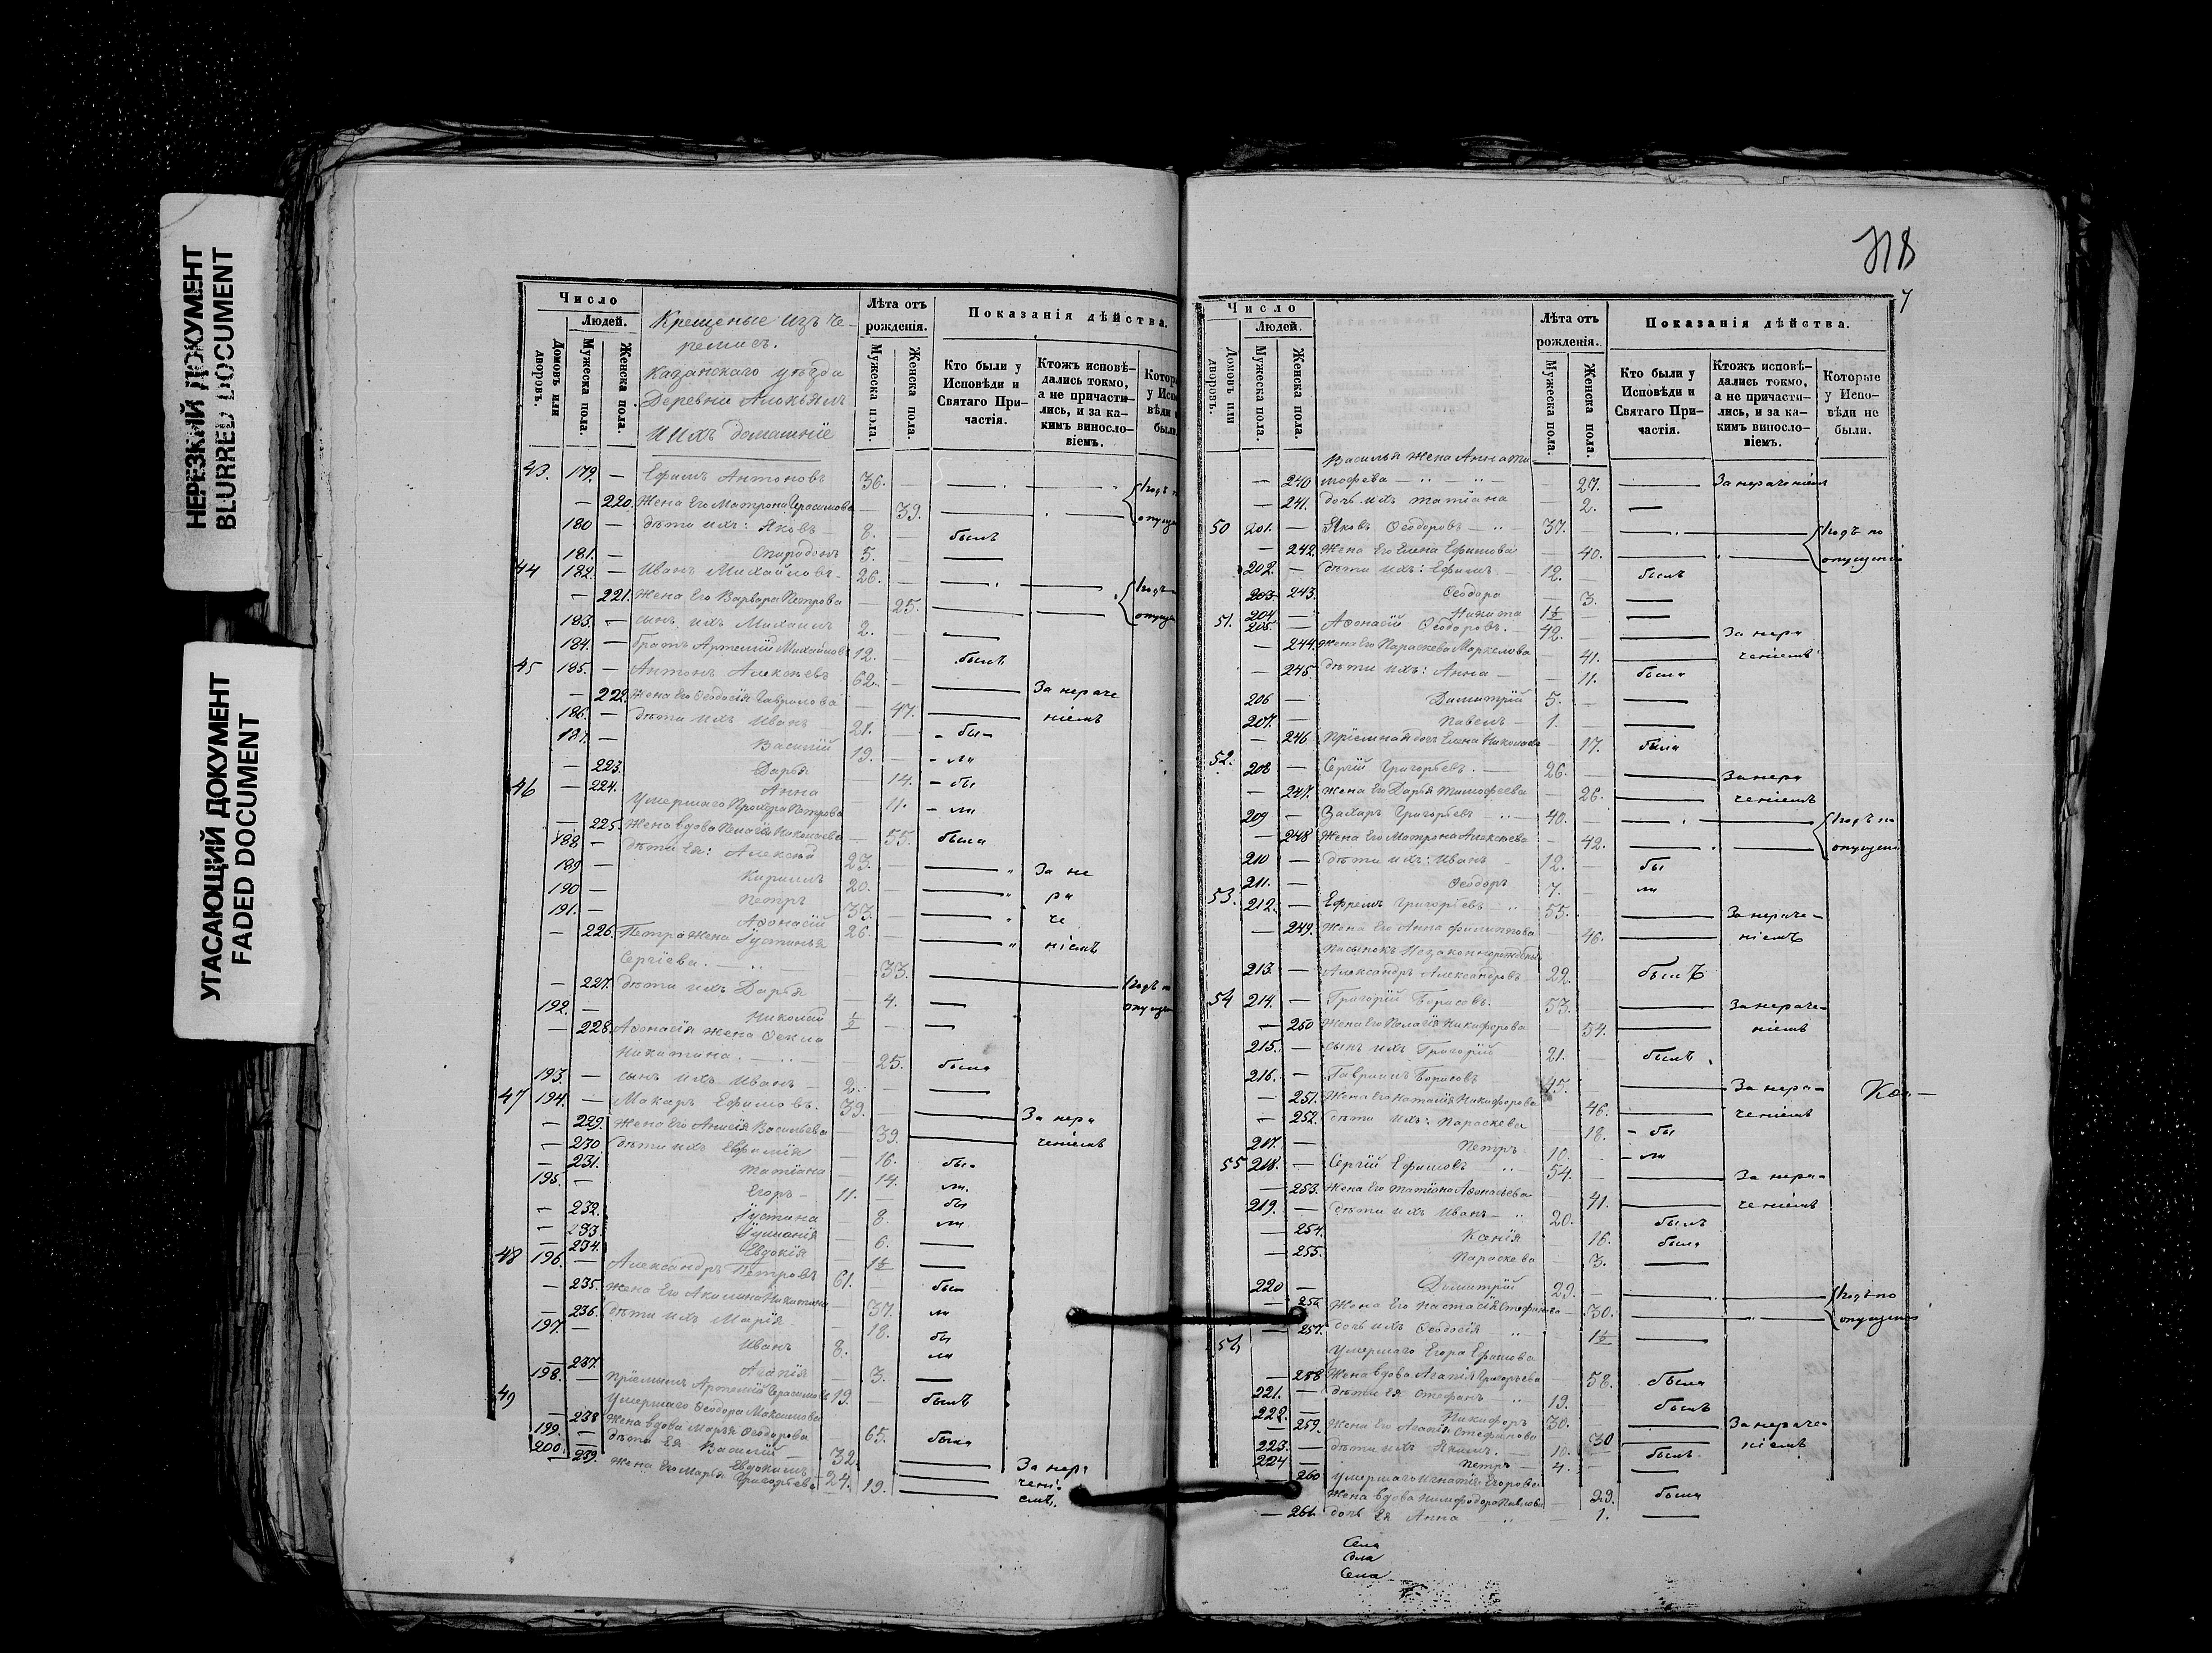 НЕРЕЗКИЙ ДОКУМЕНТ
BLURRED DOCUMENT
УГАСАЮЩИЙ ДОКУМЕНТ
FADED DOCUMENT
Число
Людей.
Домовъ или дворовъ.
Мужеска пола.
Женска пола.
Крещеные изъ че-
ремисъ.
Казанскаго уѣзда
Деревни
и ихъ домашніе
Лѣта отъ рожденія.
Мужеска пола.
Женска пола.
Показанія дѣйства.
Кто были у Исповѣди и Святаго При-частія.
Ктожъ исповѣ-дались токмо, а не причасти-лись, и за ка-кимъ виносло-віемъ.
43. 179. — Ефимъ Антоновъ 36.
— 220. Жена Его Матрона Герасимова — 39.
180 — дѣти ихъ: Яковъ 8. — былъ
181. — Спиридонъ 5. —
44 182. — Иванъ Михайловъ 26. —
— 221. Жена Его Варвара Петрова — 25.
183. — сынъ ихъ Михаилъ 2. —
184. — братъ Артемій Михайловъ 12. — былъ
45 185. — Антонъ Алексѣевъ 62. — За нераче
— 222. Жена Его Ѳеодосія Гаврилова — 47. ніемъ
186. — дѣти ихъ Иванъ 21. — бы
187. — Василій 19. — ли
— 223. Дарья 14. бы
— 224. Анна — 11. ли
46 Умершаго Петрова
— 225. Жена вдова Пелагія Николаева — 55. была
188 — дѣти Ея: Алексѣй 23.
189 — Кирилъ 20. — За не
190 — Петръ 33. — ра
191. — Аѳонасій 26. — че
— 226. Петра жена Іустинья ніемъ
Сергіева. — 33.
— 227. дѣти ихъ Дарья — 4. —
192. — Николай ½ —
— 228. Аѳонасія жена Ѳекла
Никитина. — 25. была
193. — сынъ ихъ Иванъ 2. —
47 194. — Макаръ Ефимовъ. 39. — За нера
— 229. Жена Его Анисія Васильева 39. ченіемъ
— 230 дѣти ихъ Евфимія — 16. бы
— 231. Татіана 14. ли
195. — Егоръ 11. — бы
— 232. Іустина — 8. ли
— 233. Іуліанія — 6. —
— 234. Евдокія — 1½ —
48 196. — Александръ Петровъ 61. — бы
— 235. Жена Его Акилина Никитина 37. ли
— 236. дѣти ихъ Марія — 18. бы
197. — Иванъ 8. ли
— 237. Агапія — 3. —
198. — Пріемышъ Артемій Герасимовъ 19. — былъ
49 Умершаго Ѳеодора Максимова
— 238 Жена вдова Марья Ѳеодорова 65. была
199. — дѣти Ея Василій 32. За нера
200. — Евдокимъ 24. чені
— 239. Жена Его Марья Григорьева 19. емъ.
318
7
Число
Людей.
Домовъ или дворовъ.
Мужеска пола.
Женска пола.
Лѣта отъ рожденія.
Мужеска пола.
Женска пола.
Показанія дѣйства.
Кто были у Исповѣди и Святаго При-частія.
Ктожъ исповѣ-дались токмо, а не причасти-лись, и за ка-кимъ виносло-віемъ.
Которые у Испо-вѣди не были.
Василья жена Анна Ти-
— 240 моѳеева 27. За нераченіемъ
— 241. дочь ихъ Татіана — 2. —
50 201. — Яковъ Ѳеодоровъ 37. по
— 242. Жена Его Елена Ефимова — 40. опущенію
202. — дѣти ихъ: Ефимъ 12. — былъ
243. Ѳеодора — 3. —
204. — Никита 1½ —
51. 205. — Аѳонасій Ѳеодоровъ. 42. За нера
— 244. Жена Его Параскева Маркелова — 41. ченіемъ
— 245. дѣти ихъ: Анна — 11. была
206 — Димитрій 5. —
207. — Павелъ 1. —
— 246 Пріемная дочь Елена Николаева — 17. была
52. 208 — Сергій Григорьевъ. 26. — За нера
— 247. Жена Его Дарья Тимоѳеева — 26. ченіемъ
209 — Захаръ Григорьевъ 40. по
— 248 Жена Его Матрона Алексѣева — 42. опущені
210 — дѣти ихъ: Иванъ 12. бы
211. — Ѳеодоръ 7. ли
53. 212. — Ефремъ Григорьевъ 55. За нераче-
— 249. Жена Его Анна Филиппова — 46. ніемъ
Пасынокъ Незаконнорожденный
213. — Александръ Александровъ 22. былъ
54 214. — Григорій Борисовъ. 53. За нераче-
— 250 Жена Его Пелагія Никифорова — 54. ніемъ
215. — сынъ ихъ Григорій 21. былъ
216. — Гавріилъ Борисовъ 45. За нера-
— 251. Жена Его Наталія Никифорова 46. ченіемъ
— 252. дѣти ихъ: Параскева 18. бы
217. — Петръ 10. ли
55 218. — Сергій Ефимовъ 54. За нера-
— 253. Жена Его Татіана Аѳонасьева 41. ченіемъ
219. — дѣти ихъ Иванъ 20. былъ
— 254. Ксенія 16. была
— 255. Параскева 3. —
220 — Димитрій 29. по
— 256 Жена Его Настасія Стефанова 30. опущенію
— 257. дочь ихъ Ѳеодосія 1½ —
56 Умершаго Егора Ефимова
— 258 Жена вдова Агапія Григорьева — 58. была
221. — дѣти Ея Стефанъ 19. былъ
222. — Никифоръ 30. За нераче-
— 259. Жена Его Агапія Стефанова 30 ніемъ
223. — дѣти ихъ Якимъ. 10. былъ
224 — Петръ 4. —
260 Умершаго Игнатія Егорова
Жена вдова Павлова — 29. была
— 261. дочь Ея Анна — 1. —
Села
Села
Села